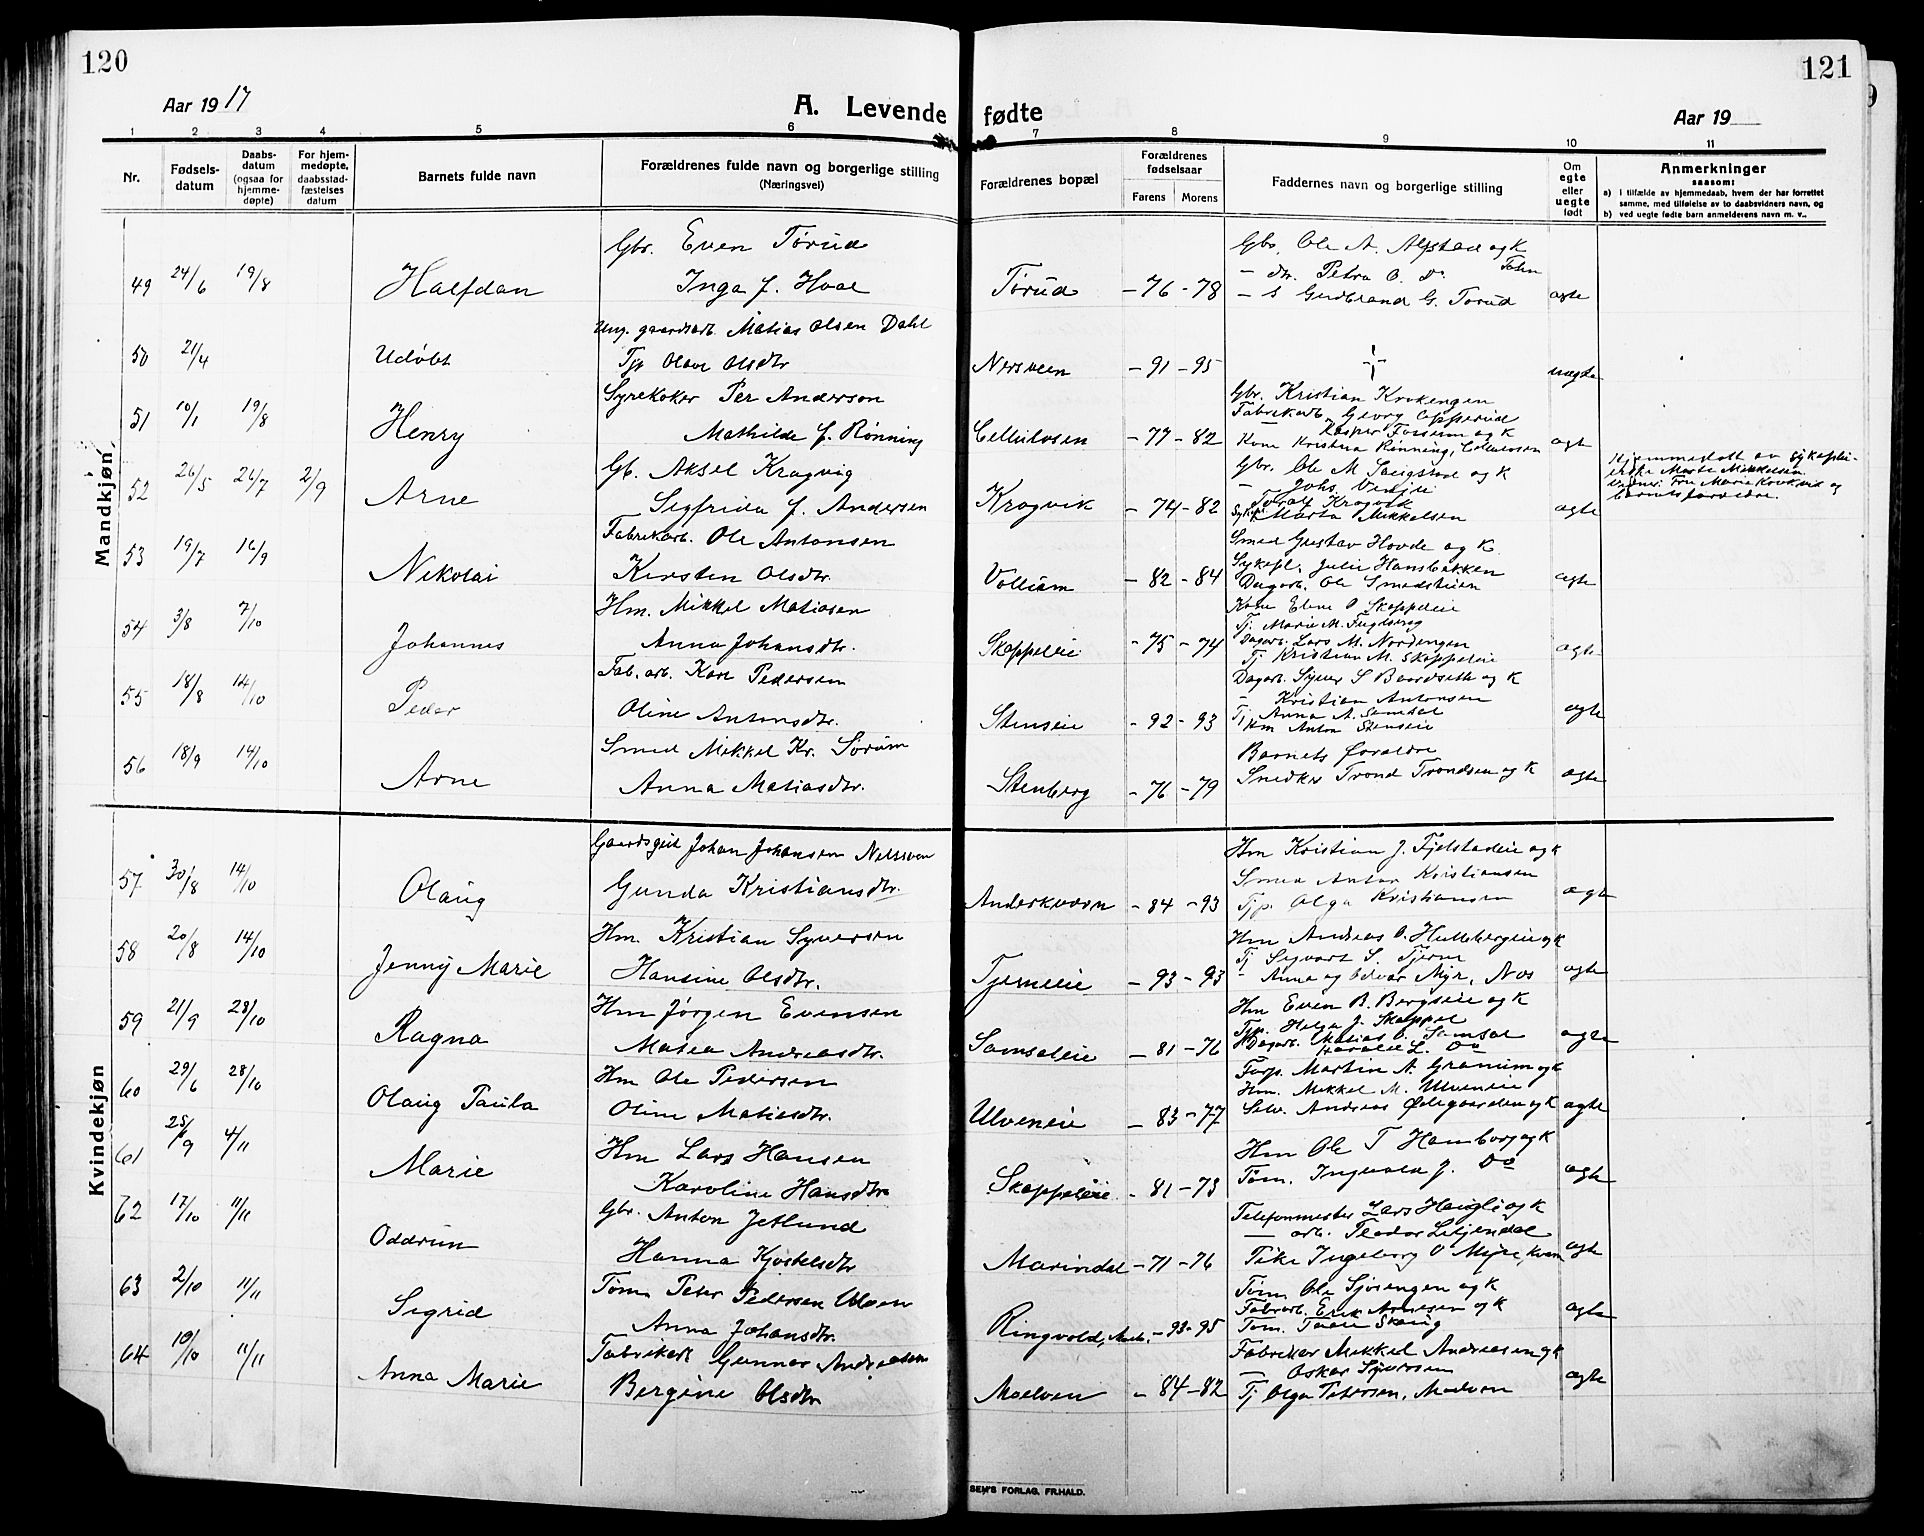 120
121
Aar 1917
A. Levende fødte
Aar 19
1 2 3 4 5 6 7 8 9 10 11
Nr.
Fødsels-
datum
Daabs-
datum
(ogsaa for
hjemme-
døpte)
For hjem-
medøpte,
daabsstad-
fæstelses
datum
Barnets fulde navn
Forældrenes fulde navn og borgerlige stilling
(Næringsvei)
Forældrenes bopæl
Forældrenes
fødselsaar
Farens Morens
Faddernes navn og borgerlige stilling
Om
egte
eller
uegte
født
Anmerkninger
saasom:
a) i tilfælde av hjemmedaab, hvem der har forrettet
samme, med tilføielse av to daabsvidners navn, og
b) ved uegte fødte barn anmelderens navn m. v..
Mandkjøn
49 24/6 19/8 Halfdan
Gbr. Even Tørud
Inga f. Hoel
Tørud - 76 - 78
Gbr. Ole A. Alfstad og K
- dtr. Petra O. Do
- s Gudbrand G. Tørud
ægte
50 21/4 Udøbt
Ung. gaardsarb. Matias Olsen Dahl
Tjp Olava Olsdtr
Nersveen - 91 - 95
uægte
51 10/1 19/8 Henry
Syrekoker Per Anderson
Mathilde f. Rønning
Cellulosen - 77 - 82
Gbr. Kristian Krokengen
Fabrikarb. Georg Opperud
Kasper Fossum og K
Kone Kristina Rønning, Cellulosen
ægte
52 26/5 26/7 2/9 Arne
Gb. Aksel Kragvig
Sigfrida f. Andersen
Kragvik - 74 - 82
Gbr. Ole M. Sveigstad og K
- Johs. Venjei
Toralf Kragvik
Sykepl. Marta Mikkelsen
ægte
Hjemmedøbt av sykeplei-
erske Marta Mikkelsen
barnets forældre.
53 19/7 16/9 Nikolai
Fabrikarb. Ole Antonsen
Kirsten Olsdtr.
Vollum - 82 - 84
Smed Gustav Hovde og K.
Sykepl. Julie Hansbakken
Dagarb. Ole Smedstuen
ægte
54 3/8 7/10 Johannes
Hm. Mikkel Matiasen
Anna Johansdtr.
Skappeleie - 75 - 74
Kone Elene O Skappeleie
Tj. Marie M. Fuglseng
Dagarb. Lars M. Nordengen
Tj Kristian M. Skappeleie
ægte
55 18/8 14/10 Peder
Fab. arb. Karl Pedersen
Oline Antonsdtr.
Stenseie - 92 - 93
Dagarb. Syver S Baardseth og K
- Kristian Antonsen
Tj Anna A. Samdal
Hm Anton Stenseie
ægte
56 18/9 14/10 Arne
Smed Mikkel Kr. Sørum
Anna Matiasdtr.
Stenberg - 76 - 79
Barnets Forældre
Snedker Trond Trondsen og K
ægte
Kvindekjøn
57 30/8 14/10 Olaug
Gaardsgut Johan Johansen Nersveen
Gunda Kristiansdtr.
Anderkværn - 84 - 93
Hm Kristian J. Fjelstadeie og K
Smed Anton Kristiansen
Tjp. Olga Kristiansen
ægte
58 20/8 14/10 Jenny Marie
Hm. Kristian Syversen
Hansine Olsdtr.
Tjerneie - 93 - 93
Hm Andreas O. Hullebergeie og K
Tj Sigvart S. Tjerne
- Anna og Odvar Myr, Nos
ægte
59 21/9 28/10 Ragna
Hm Jørgen Evensen
Matea Andreasdtr.
Samsaleie - 81 - 76
Hm Even B. Bergseie og K
Tjp. Helga J. Skappel
Dagarb. Matias O. Samsal
L. Do
ægte
60 29/6 28/10 Olaug Paula
Hm Ole Pedersen
Oline Matiasdtr.
Ulveneie - 83 - 77
Forp. Martin A. Granum og K
Hm. Mikkel M. Ulveneie
Selv. Andreas Ødegaarden og K
ægte
61 25/9 4/11 Marie
Hm Lars Hansen
Karoline Hansdtr
Skappeleie - 81 - 73
Hm Ole T Hamborg og K
Tøm. Ingvald J. Do
ægte
62 17/10 11/11 Oddrun
Gbr. Anton Jetlund
Hanna Kjostelsdtr
Marindal - 71 - 76
Telefonmester Lars Haugli og K
- arb. Teodor Litjendal
Pike Ingeborg O Myre, Kvam
ægte
63 2/10 11/11 Sigrid
Tøm. Peter Pedersen Ulven
Anna Johansdtr.
Ringvold, Moelv. - 93 - 95
Tøm. Ole Sjøsengen og K
Fabarb. Erik Arnesen og K
Tøm. Skaug
ægte
64 10/10 11/11 Anna Marie
Fabrikarb Gunnar Andreassen
Bergine Olsdtr
Moelven - 84 - 82
Fabrikar Mikkel Andreasen og K
- Oskar Syversen
Tj Olga Petersen, Moelven
ægte
SEM'S FORLAG, FR.HALD.